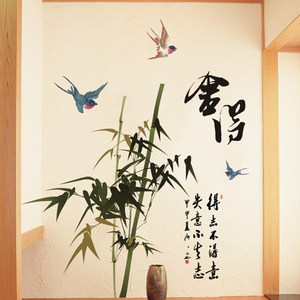 舍得
得志不得意
失意不失志